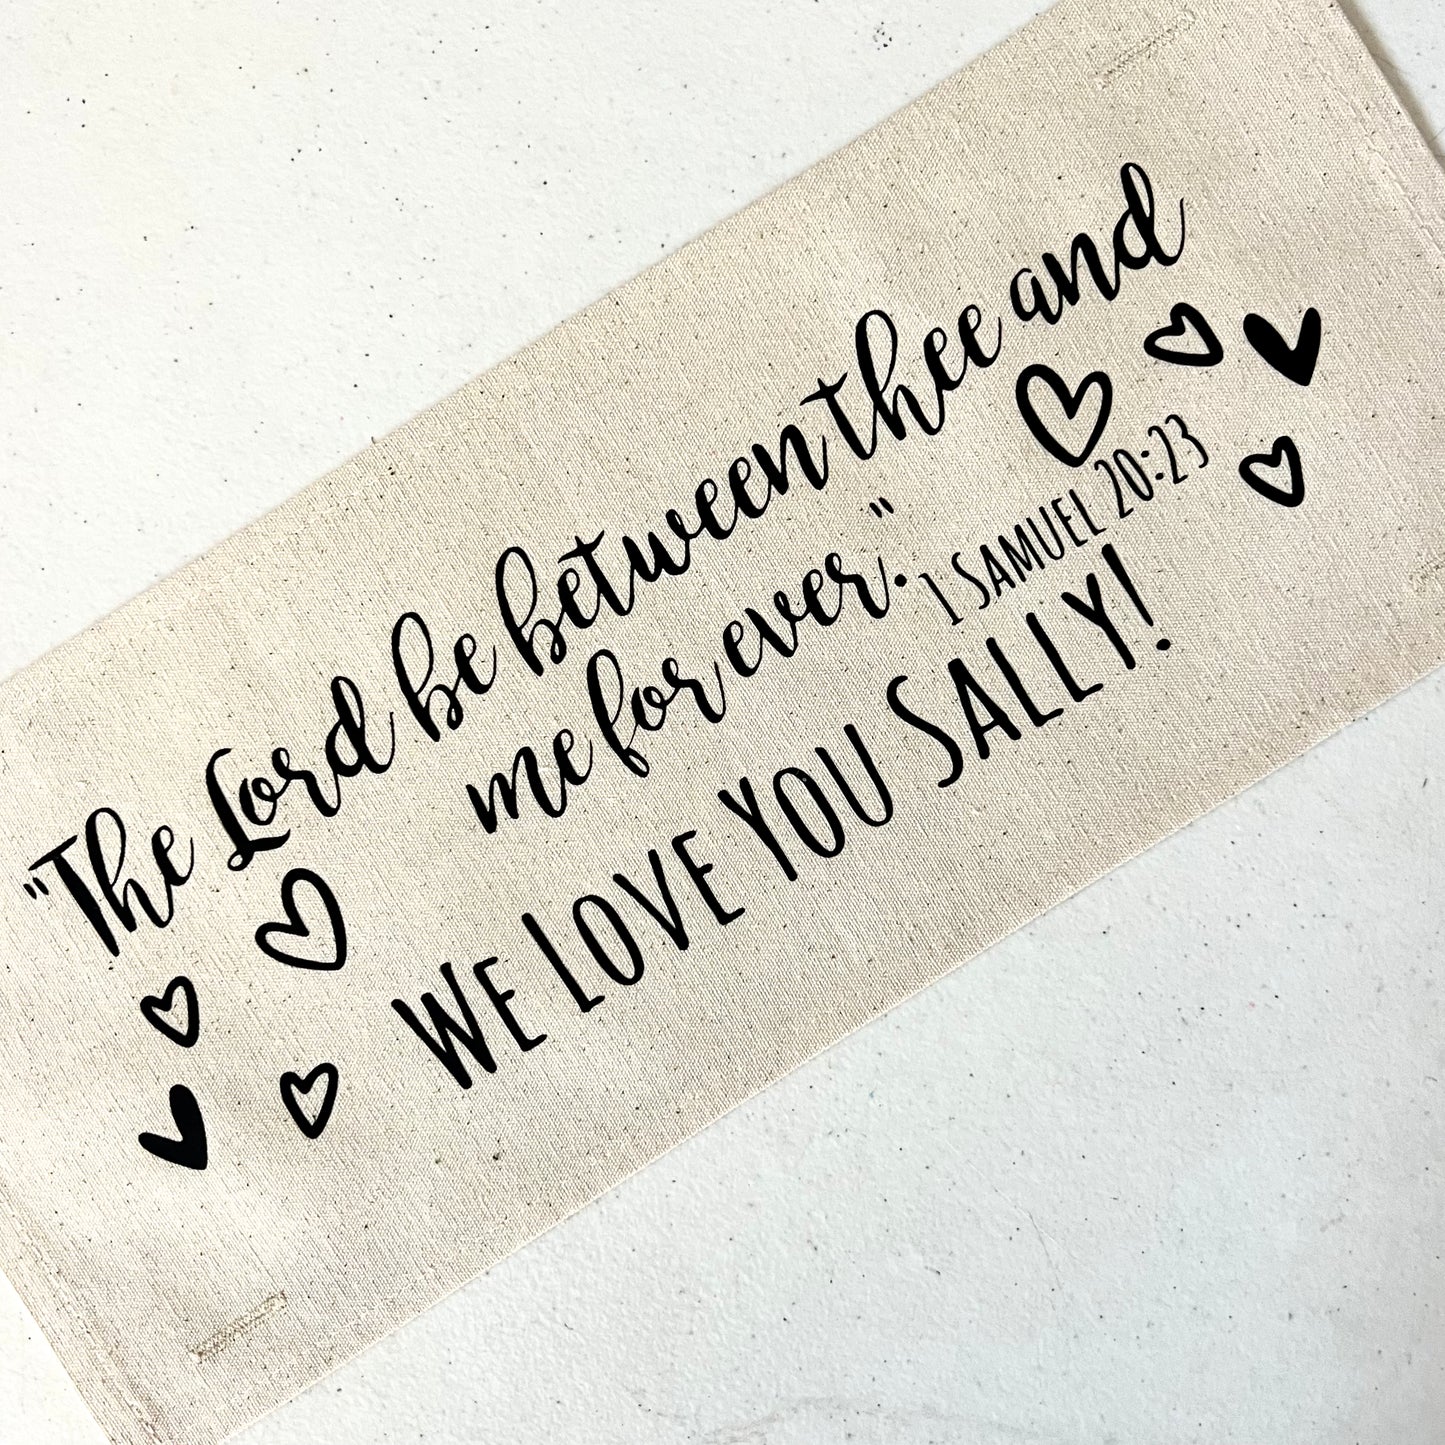 "The Lord be between thee and
me for ever."
1 SAMUEL 20:23
WE LOVE YOU SALLY!